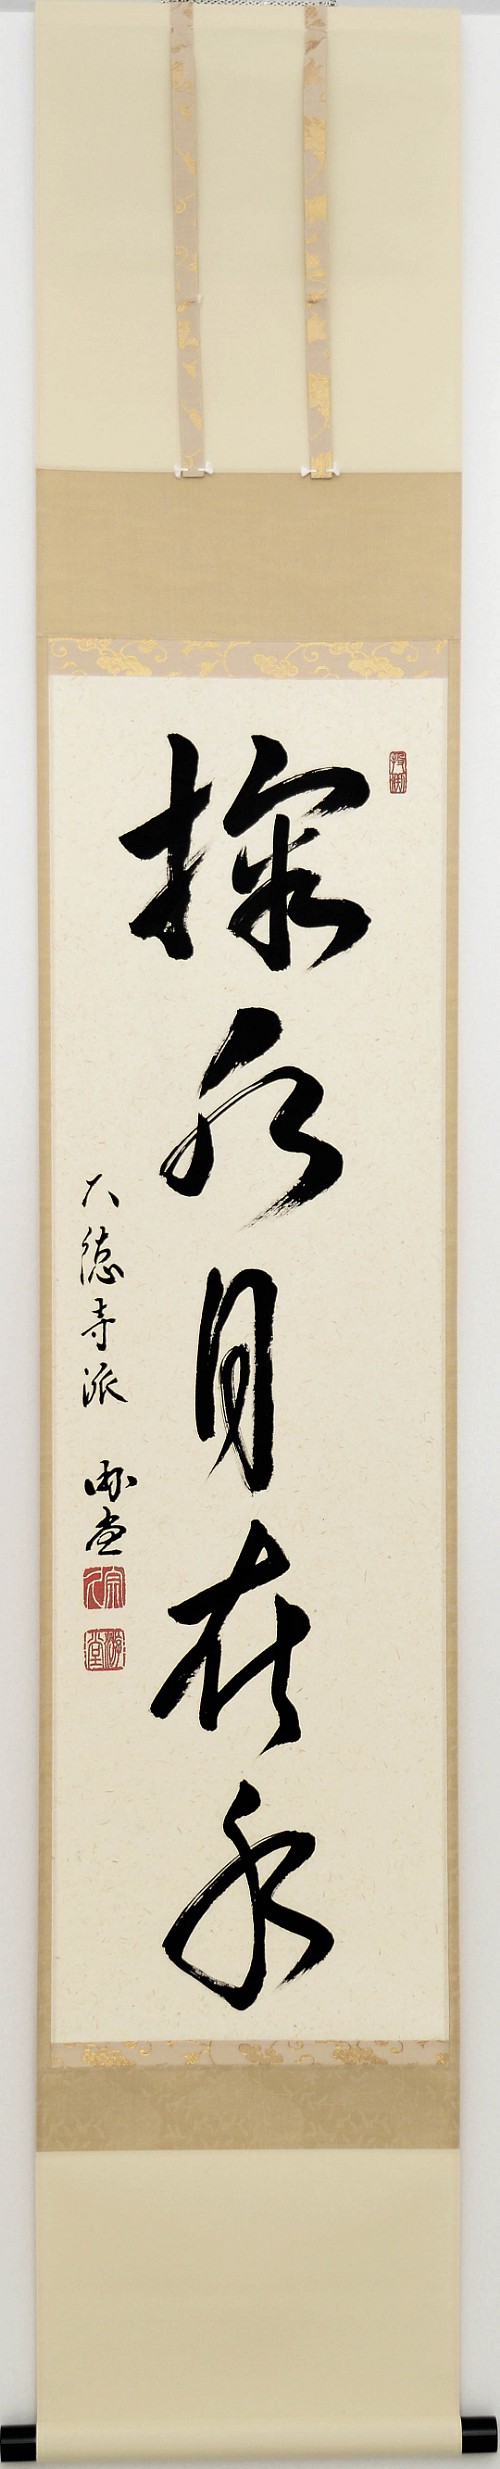 掬水月在手
大徳寺派